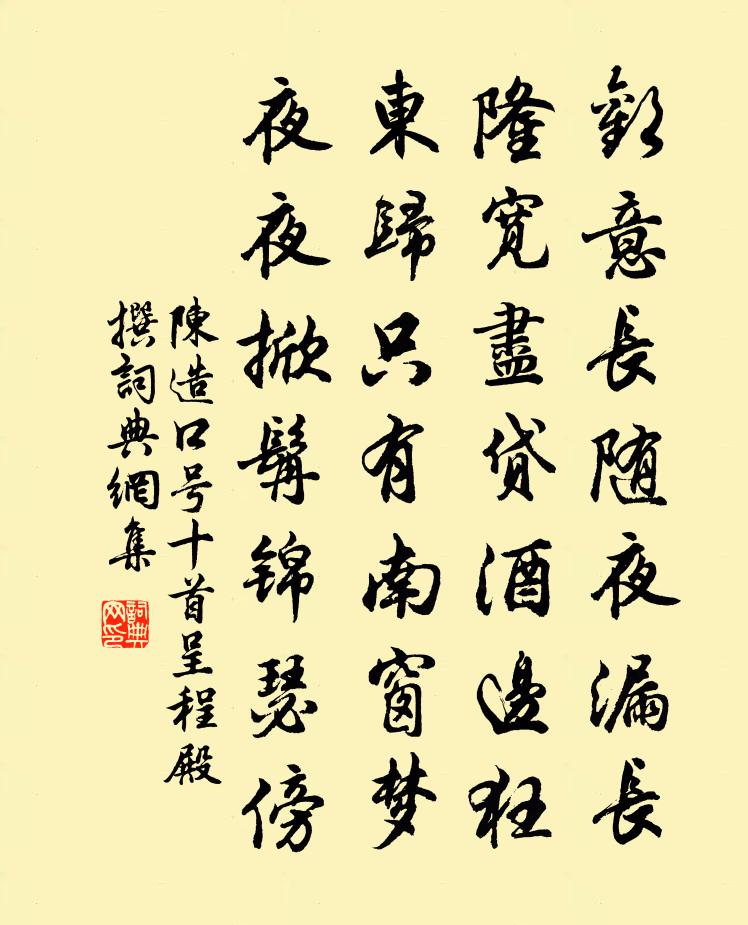 歡意長随夜漏長
隆寬盡貸酒邊狂
東歸只有南窗梦
夜夜掀髯锦瑟傍
陳造口号十首呈程殿
撰詞典網集
詞典
网印